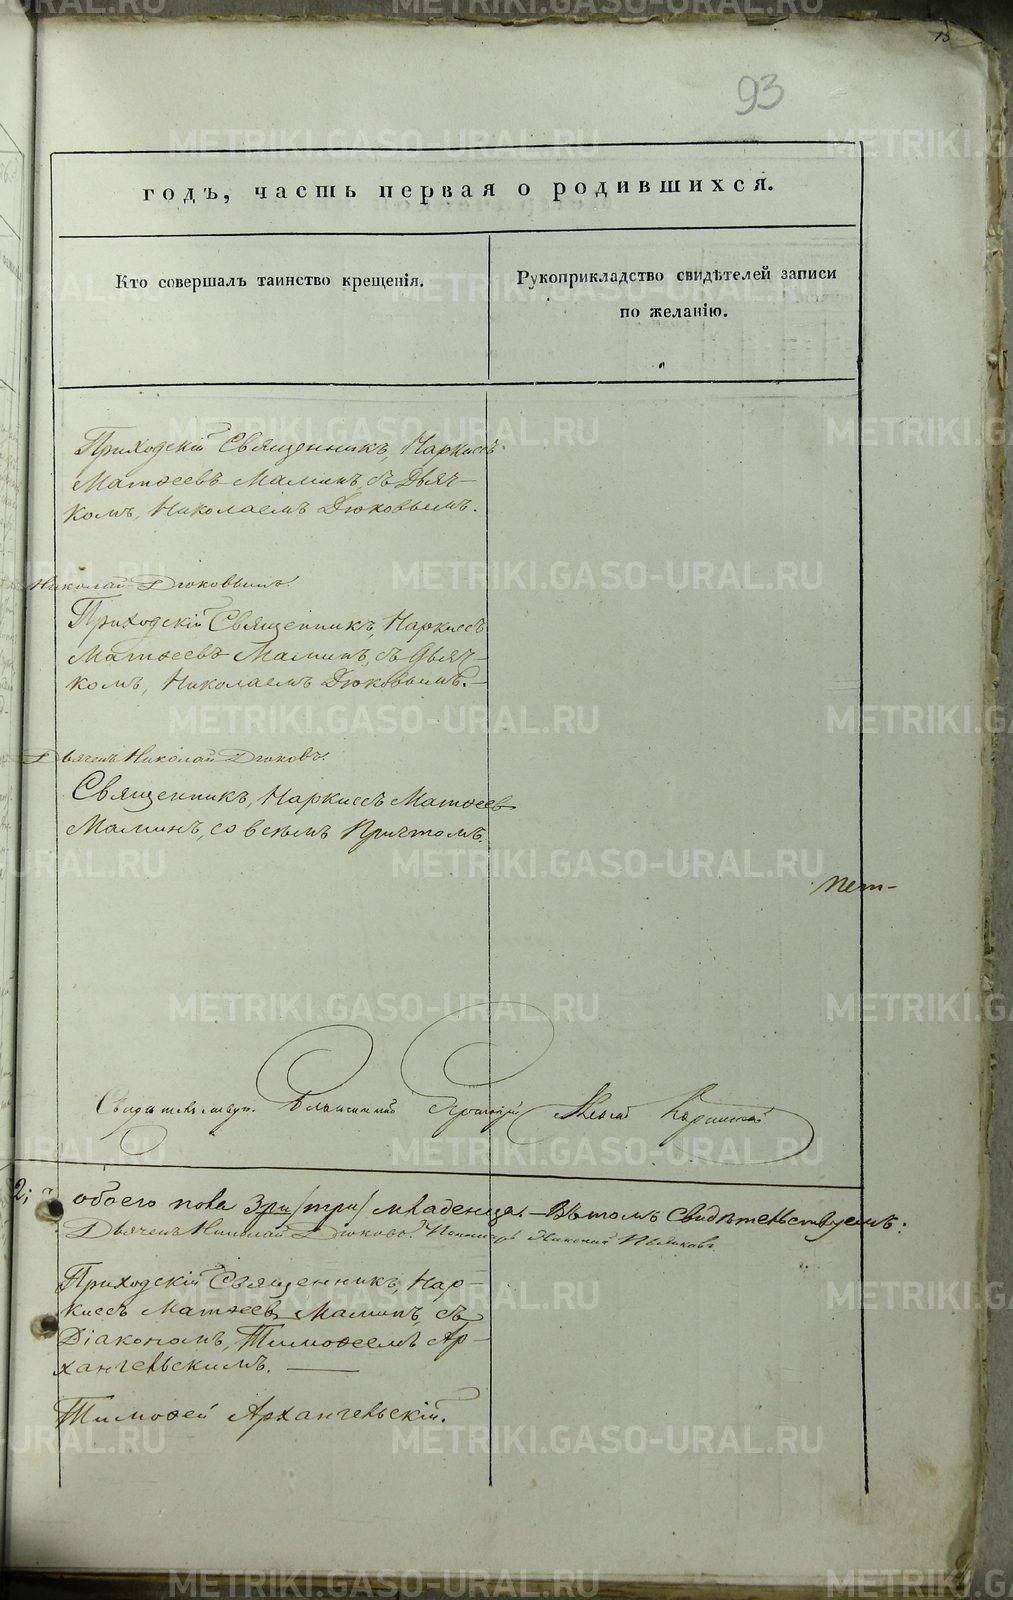 15
93
годъ, часть первая о родившихся.
Кто совершалъ таинство крещенія.
Рукоприкладство свидѣтелей записи
по желанію.
Приходскій Священникъ, Наркисъ
Матѳеевъ Маминъ, съ Дьяч-
комъ, Николаемъ Дюковымъ.
Николай Дюковымъ.
Приходскій Священникъ, Наркисъ
Матѳеевъ Маминъ, съ Дьяч-
комъ, Николаемъ Дюковымъ.
Дьячекъ Николай Дюковъ.
Священникъ, Наркисъ Матѳеев
Маминъ, со всѣмъ Причтомъ.
нет-
Свидѣтельств. Благочинный Іерей
2; обоего пола 3ри /три/ младенца. Въ томъ свидѣтельствуемъ:
Дьячекъ Николай Дюковъ. Пономарь
Приходскій Священникъ, Нар-
кисъ Матѳеев Маминъ, съ
Діакономъ, Тимоѳеемъ Ар-
хангельскимъ.
Тимоѳей Архангельскій.
METRIKI.GASO-URAL.RU